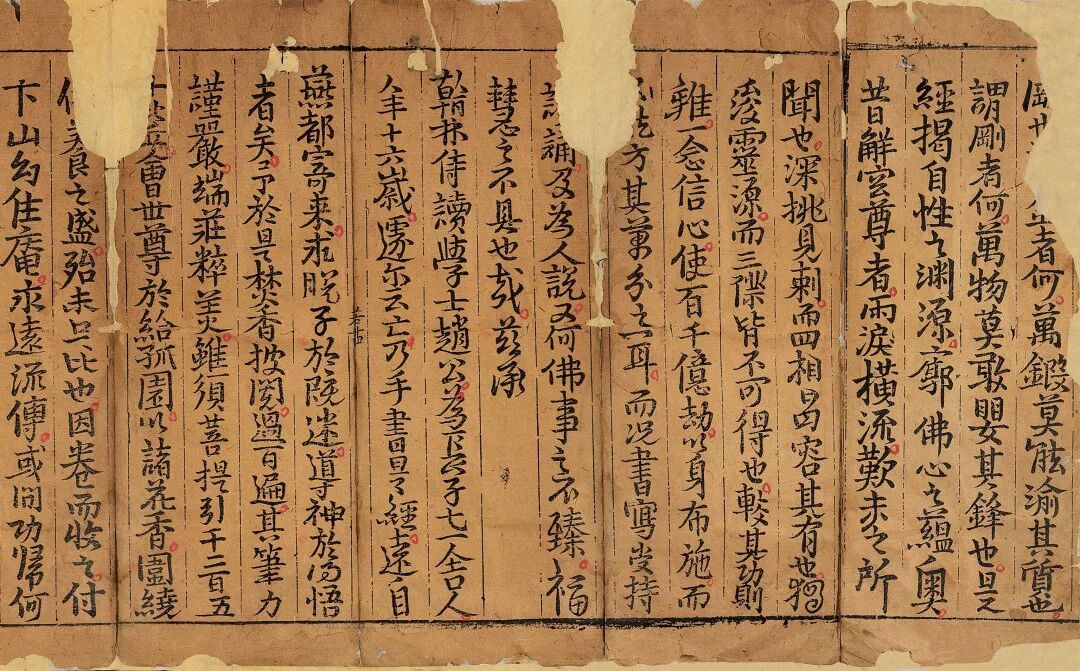 者何萬鍛莫能渝其質也
謂剛者何萬物莫敢嬰其鋒也是之
經揭自性之淵源廓佛心之蘊奧
昔解空尊者雨淚橫流歎未之所
聞也深挑見刺而四相曷容其有也獨
發靈源而三際皆不可得也較其功則
雖一念信心使百千億劫以身布施而
方其萬分之一耳而况書寫受持
誦及為人說又何佛事之不臻福
慧之不具也哉茲承
翰林侍讀學士趙公為子七一舍人
年十六歲遽尔云亡乃手書是之經遠自
燕都寄來求脫子於既迷導神於悟
者矣予於是焚香披閱過百遍其筆力
謹嚴端莊粹美雖須菩提引千二百五
會世尊於給孤園以諸花香圍繞
養之盛殆未足比也因卷而收之付
卞山幻住庵永遠流傳或問功歸何